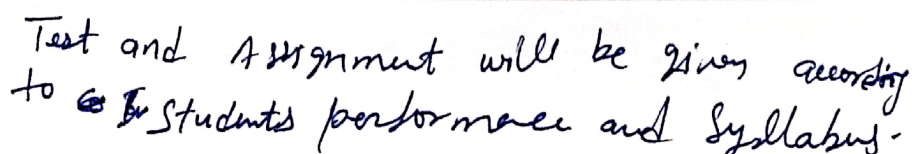 Test and Assignment will be given according
to Students performance and Syllabus.